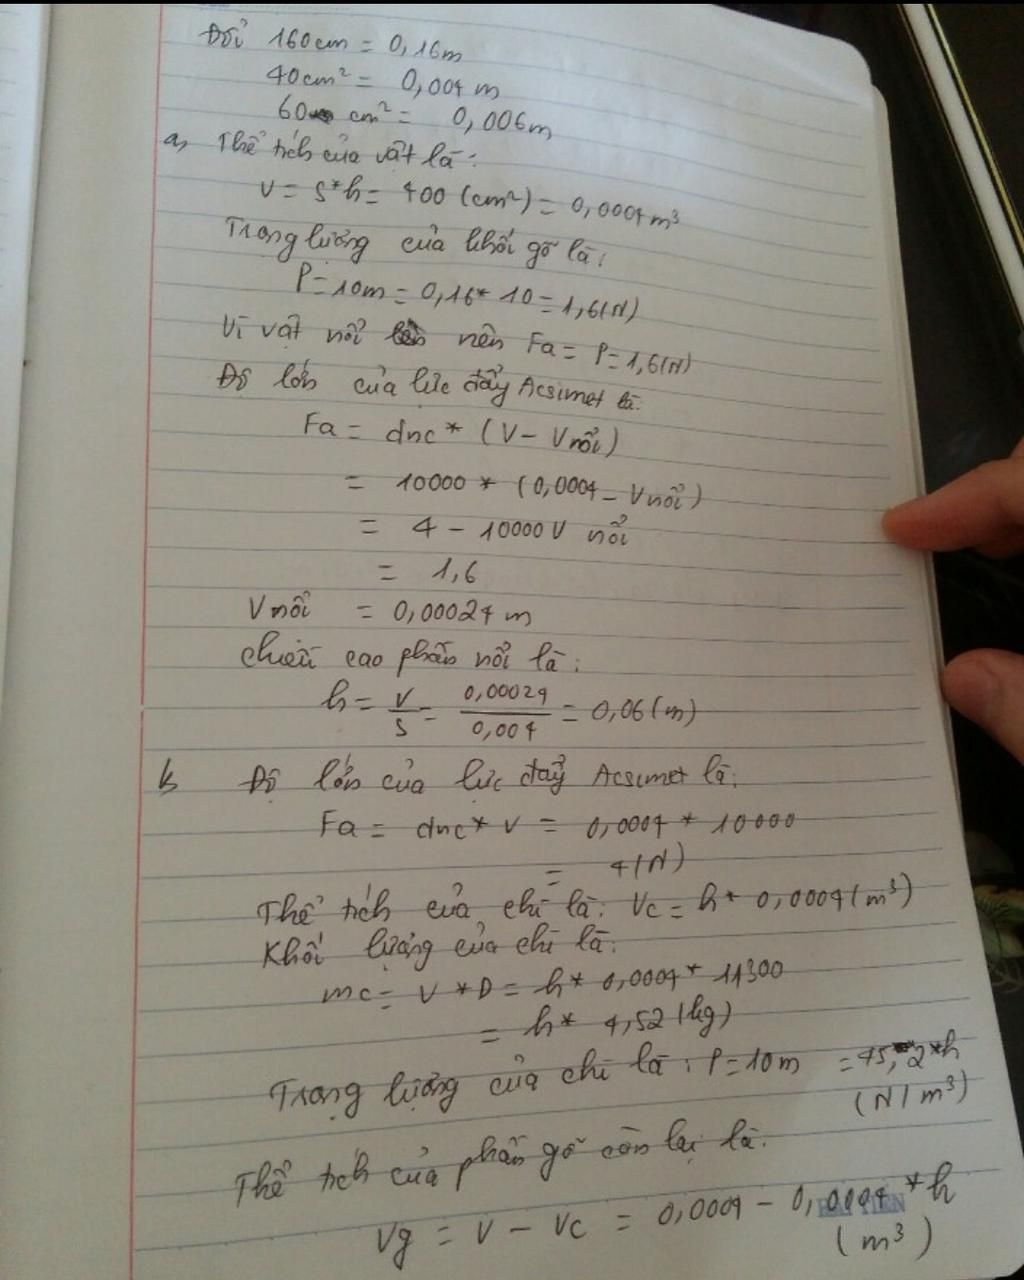 Đổi 160cm = 0,16m
40cm² = 0,004 m
60 cm² = 0,006m
a, Thể tích của vật là:
V = S*h = 400 (cm²) = 0,0004m³
Trọng lượng của khối gỗ là:
P = 10m = 0,16* 10 = 1,6(N)
Vì vật nổi nên Fa = P = 1,6(N)
Độ lớn của lực đẩy Acsimet là:
Fa = dnc* (V - Vnổi)
= 10000 * (0,0004 - Vnổi)
= 4 - 10000V nổi
= 1,6
Vnổi = 0,00024 m
chiều cao phần nổi là:
h = V/S = 0,00024/0,004 = 0,06(m)
b Độ lớn của lực đẩy Acsimet là:
Fa = dnc* V = 0,0004 * 10000
= 4(N)
Thể tích của chì là: Vc = h* 0,0004(m³)
Khối lượng của chì là:
mc = V *D = h* 0,0004* 11300
= h* 4,52(kg)
Trọng lượng của chì là: P = 10m = 45,2*h
(N/m³)
Thể tích của phần gỗ còn lại là:
Vg = V - Vc = 0,0004 - 0,0004 *h
(m³)